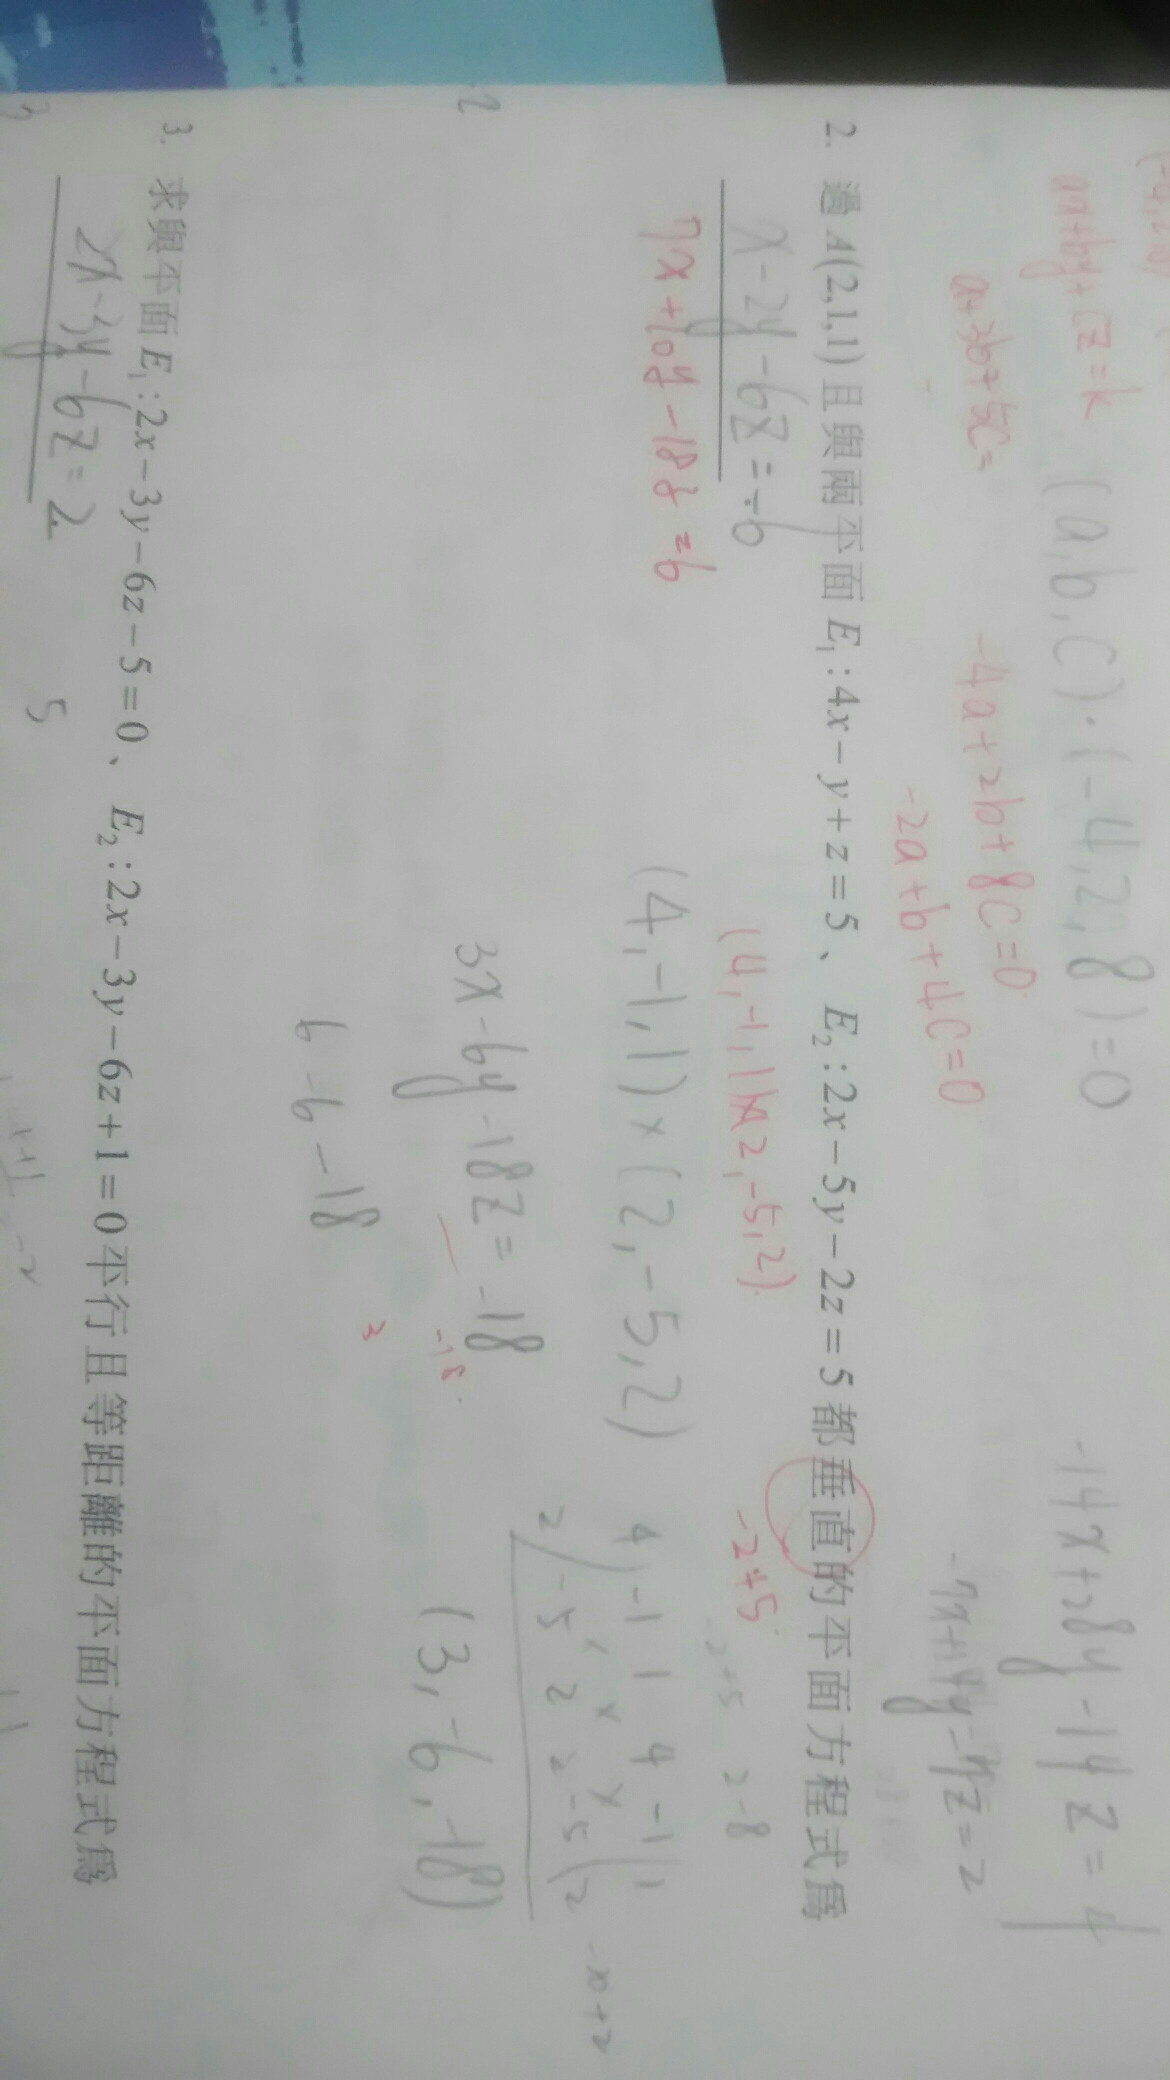 ax+by+cz=k
(a,b,c)·(-4,2,8)=0
-14x+28y-14z=4
-4a+2b+8c=0
-2a+b+4c=0
2. 過 A(2,1,1) 且與兩平面 E₁:4x−y+z=5、E₂:2x−5y−2z=5 都垂直的平面方程式為
x-2y-6z=-6
7x+10y-18z=6
(4,-1,1)×(2,-5,2)
-2+5
-2+5 2-8
(4,-1,1)×(2,-5,2)
4 -1 1 4 -1 1
2 -5 2 2 -5 2
3x-6y-18z=-18
-18
(3,-6,-18)
6-6-18
3
3. 求與平面 E₁:2x−3y−6z−5=0、E₂:2x−3y−6z+1=0平行且等距離的平面方程式為
2x-3y-6z=2
5